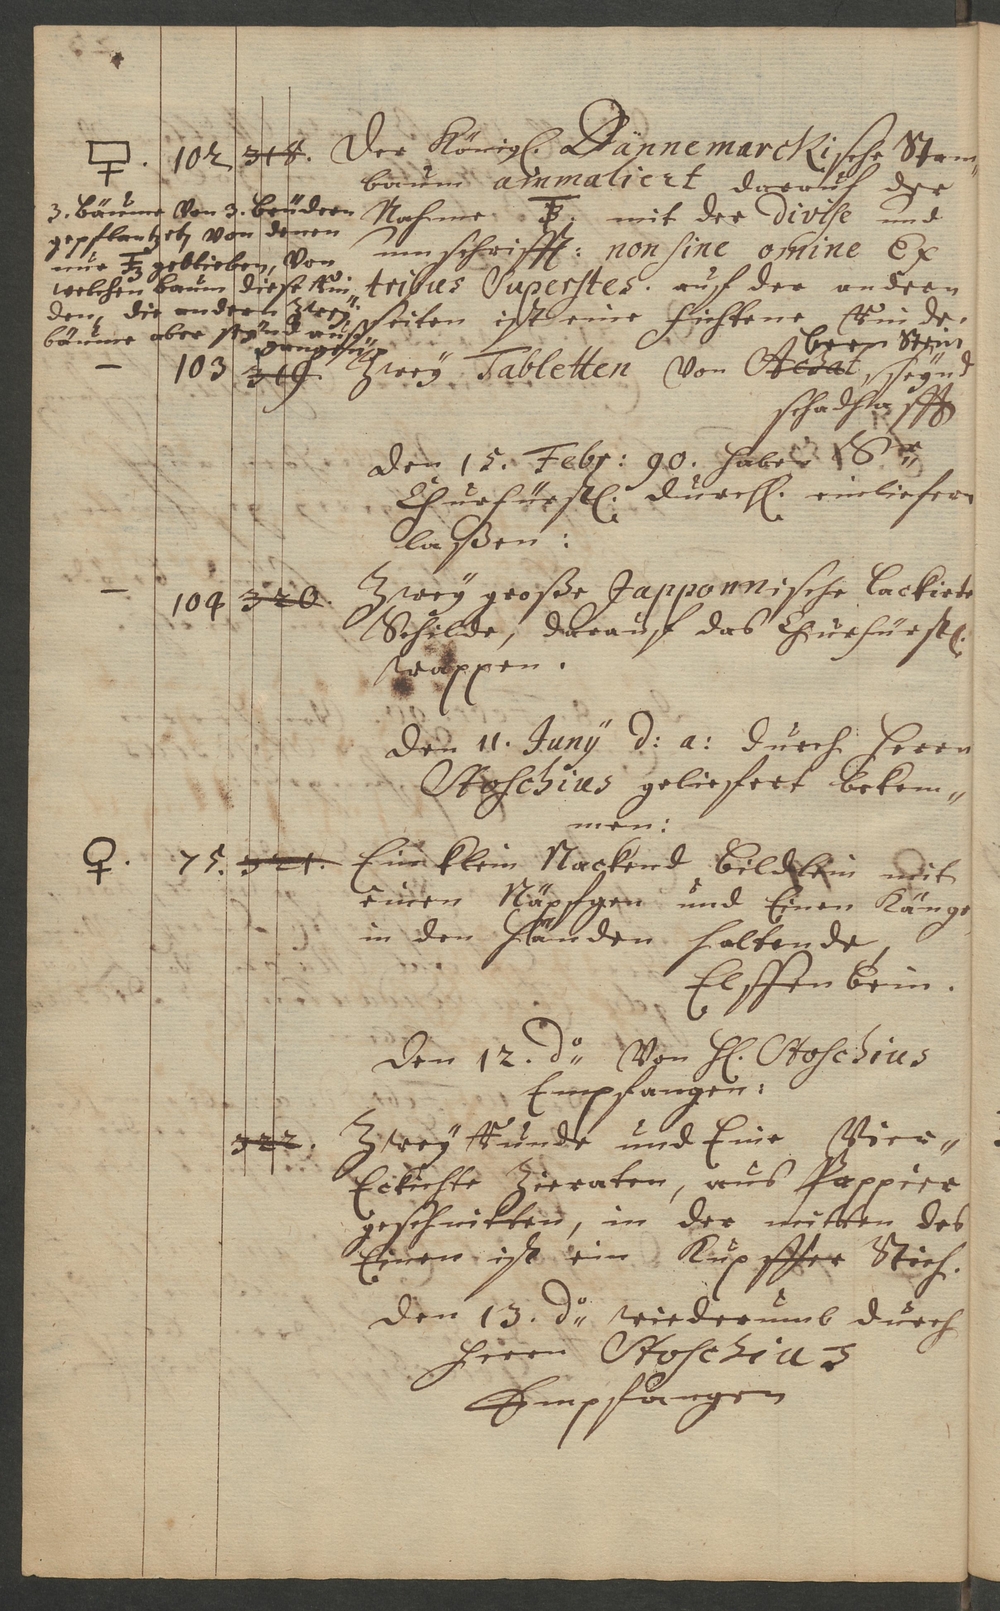 102 318. Der Königl. Dännemarckische Stam„
baum ammaliert darauf der
Nahme mit der Divise und
umschrifft: non sine omine Ex
tribus Superstes. auf der andern
seiten ist eine fichtene Rinde.
3. bäume Von 3. brüdern
gepflantzet, von denen
nur geblieben, Von
welchem baum diese Rin„
den, die andern Zwey
bäume aber seynd auß
gangen
Bern Stein
– 103 319 Zwey Tabletten Von Achat, seynd
schadhafft
Den 15. Febr: 90. haben Sr.
Churfürstl. Durchl. einliefern
laßen:
– 104 320. Zwey große Japponnische lackirte
Schilde, darauf das Churfürstl.
wappen.
Den 11. Juny d: a: durch Herrn
Stoschius geliefert bekom„
men:
♀. 75. 321. Ein klein Nackend bildlein mit
einen Näpfgen und Einen Känge
in den Händen haltende,
Elffenbein.
Den 12. do„ Von Hl. Stoschius
Empfangen:
322. Zwey Runde und Eine Vier„
Eckichte Zieraten, aus Pappier
geschnitten, in der mitten des
Einen ist ein Kupffer Stich.
Den 13. do„ wiederumb durch
Herrn Stoschius
Empfangen